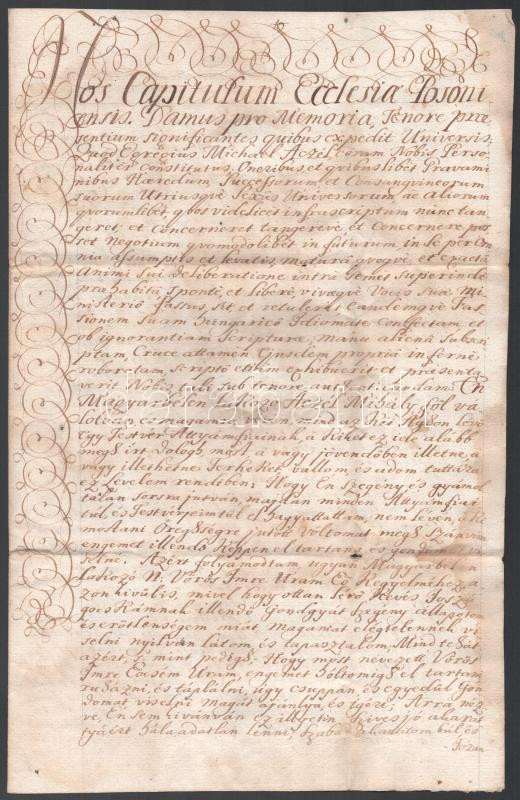 Nos Capitulum Ecclesiæ Posoni
ensis. Damus pro Memoria, Tenore præ
sentium significantes quibus expedit Universis.
Quod Egregius Michael Aczil coram Nobis Perso
naliter Constitutus, Oneribus et quibuslibet Gravami
nibus Hæredum Successorum, et Consanguineorum
suorum Utriusque Sexus Universorum, ac Aliorum
quorumlibet, quos videlicet infrascriptum nunc tan
geret, et Concerneret tangereve, et Concernere pos
set Negotium quomodolibet in futurum, in se per Om
nia assumptis et levatis, matura quoque et exacta
Animi Sui deliberatione intra semet Superinde
præhabita Sponte, et Libere, vivæque Vocis Suæ Mi
nisterio Fassus sit, et retulerit Eandemque Fas
sionem Suam Hungarico Idiomate Confectam et
ob ignorantiam Scripturæ, manu aliena Subscri
ptam, Cruce attamen Ejusdem propria inferne
roboratam, Scripto etiam exhibuerit et præsenta
verit Nobis, tali sub tenore authenticandam: En
Magyarbélen Lakozó Aczél Mihály
valóban, és magamra vévén, mind az Két Ágon lévő
Testvér Attyámfiainak, a kiket ez ide alább
megh írt Dologh, most, a vagy jövendőben illetne, a
vagy illethetne Terheket, vallom, és adom tuttára
ez Levelem rendiben: Hogy En Szegény és gyámol
talan Sorsra jutván, majdan minden Attyámfiai
túl és Testvéreimtúl el hagyattattam, nem lévén, a ki
mostani Öregségre jutott Voltomat megh Szánván
engemet illendő Képpen el tartani, és gondomat vi
selné. Azért folyamodtam, ugyan Magyarbélen
Lakozó N: Vörös Imre Uram Eő Kegyelméhez, a
zon kivülis, mivel hogy ottan lévő Kevés Joszá
gocskámnak illendő Gondgyát Szegény állapotom
és erőtlenségem miát magamat elégtelennek vi
selni nyilván látom, és tapasztalom. Mind tehát
azért, s mint pedigh: Hogy most nevezett Vörös
Imre Öcsém Uram, engemet holtomigh el tartani
ruházni, és táplálni, úgy csuppán és egyedül Gon
domat viselni magát ajánlya, és igéri; Arra néz
ve, En sem kivánván ez illyetin Szives jó akarat
tyáért hálaadatlan lenni, Szabad akaratombúl és
Jozan
darabanth.com